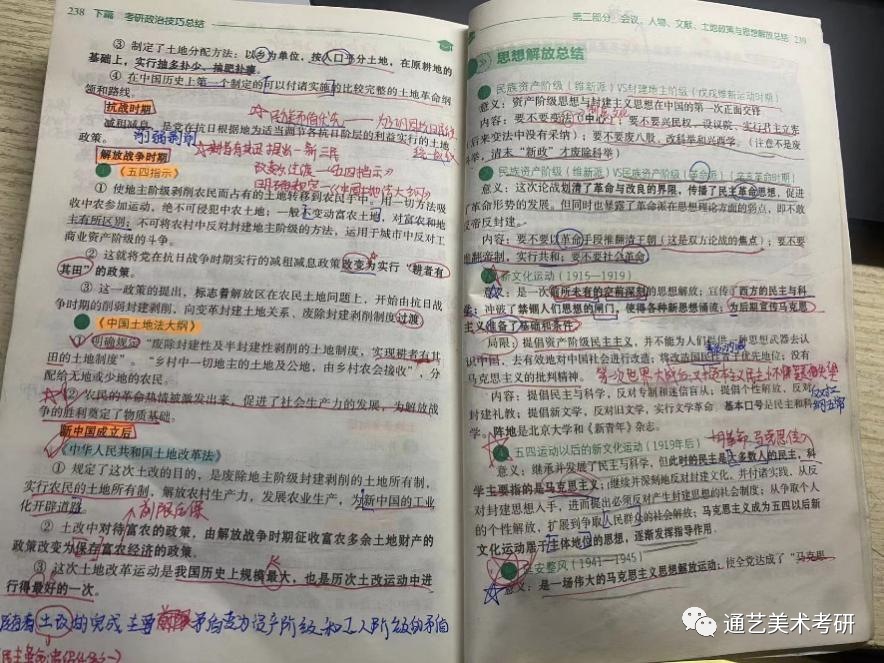 238 下篇 考研政治技巧总结
③ 制定了土地分配方法：以乡为单位，按人口平分土地，在原耕地的
基础上，实行抽多补少、抽肥补瘦。
④ 在中国历史上第一个制定的可以付诸实施的比较完整的土地革命纲
领和路线。
抗战时期
减租减息，是党在抗日根据地为适当调节各抗日阶层的利益实行的土地
政策。
削弱剥削
解放战争时期
《五四指示》
① 使地主阶级剥削农民而占有的土地转移到农民手中。用一切方法吸
收中农参加运动，绝不可侵犯中农土地；一般不变动富农土地，对富农和地
主有所区别；不可将农村中反对封建地主阶级的方法，运用于城市中反对工
商业资产阶级的斗争。
② 这就将党在抗日战争时期实行的减租减息政策改变为实行“耕者有
其田”的政策。
③ 这一政策的提出，标志着解放区在农民土地问题上，开始由抗日战
争时期的削弱封建剥削，向变革封建土地关系、废除封建剥削制度过渡
《中国土地法大纲》
① 明确规定“废除封建性及半封建性剥削的土地制度，实现耕者有其
田的土地制度”。“乡村中一切地主的土地及公地，由乡村农会接收”，分
配给无地或少地的农民。
② 农民的革命热情被激发出来，促进了社会生产力的发展，为解放战
争的胜利奠定了物质基础。
新中国成立后
《中华人民共和国土地改革法》
① 规定了这次土改的目的，是废除地主阶级封建剥削的土地所有制，
实行农民的土地所有制，解放农村生产力，发展农业生产，为新中国的工业
化开辟道路
② 土改中对待富农的政策，由解放战争时期征收富农多余土地财产的
政策改变为保存富农经济的政策。
③ 这次土地改革运动是我国历史上规模最大，也是历次土改运动中进
行得最好的一次。
土改的完成，主要矛盾变为资产阶级和工人阶级的矛盾
第二部分 会议、人物、文献、土地政策与思想解放总结 239
思想解放总结
民族资产阶级（维新派）VS封建地主阶级（戊戌维新运动时期）
意义：资产阶级思想与封建主义思想在中国的第一次正面交锋
内容：要不要变法（中心）；要不要兴民权—设议院、实行君主立宪
（后来变法中没有采纳）；要不要废八股、改科举和兴西学。（注意不是废
科举，清末“新政”才废除科举）
民族资产阶级（维新派）VS民族资产阶级（革命派）（辛亥革命时期）
意义：这次论战划清了革命与改良的界限，传播了民主革命思想，促进
了革命形势的发展。但同时也暴露了革命派在思想理论方面的弱点，即不敢
反帝反封建。
内容：要不要以革命手段推翻清王朝（这是双方论战的焦点）；要不要
推翻帝制，实行共和；要不要社会革命
新文化运动（1915—1919）
意义：是一次前所未有的空前深刻的思想解放；宣传了西方的民主与科
学；冲破了禁锢人们思想的闸门，使得各种新思想涌流；为后期宣传马克思
主义准备了基础和条件
局限：提倡资产阶级民主主义，并不能为人们提供一种思想武器去认
识中国，去有效地对中国社会进行改造；将改造国民性置于优先地位；没有
马克思主义的批判精神。
内容：提倡民主与科学，反对专制和迷信盲从；提倡个性解放，反对
封建礼教；提倡新文学，反对旧文学，实行文学革命。基本口号是民主和科
学。阵地是北京大学和《新青年》杂志。
五四运动以后的新文化运动（1919年后）
意义：继承并发展了民主与科学，但此时的民主是大多数人的民主，科
学主要指的是马克思主义；继续并深刻地反对封建文化，并付诸实践，从反
对封建思想入手，进而提出必须反对产生封建思想的社会制度；从争取个人
的个性解放，扩展到争取人民群众的社会解放；马克思主义成为五四以后新
文化运动居于主体地位的思想，逐渐发挥指导作用。
延安整风（1941—1945）
意义：是一场伟大的马克思主义思想解放运动，使全党达成了“马克思
通艺美术考研